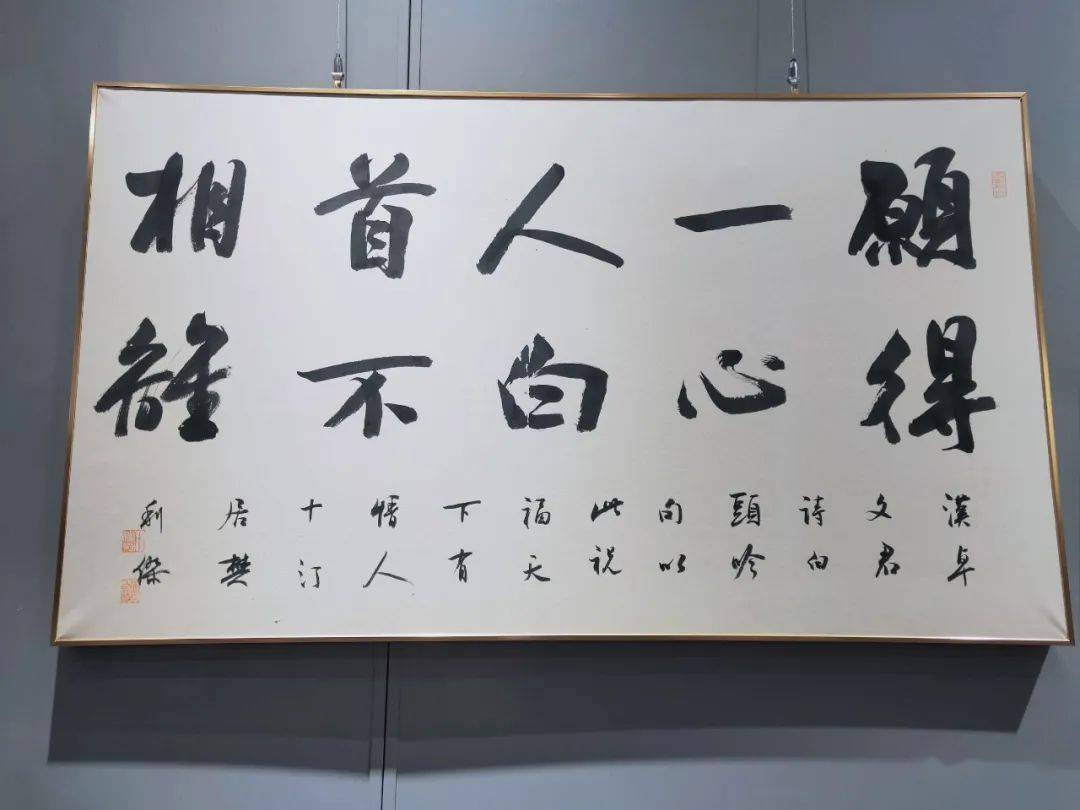 願得
一心
人白
首不
相離
漢卓
文君
詩白
頭吟
句以
此祝
福天
下有
情人
十汀
居樊
利傑